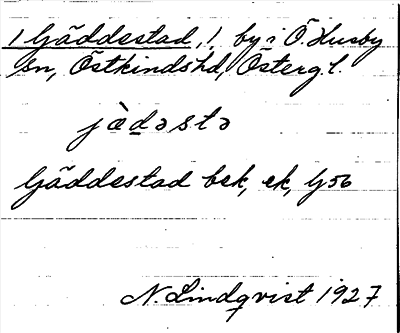 1 Gäddestad, !, by i Ö. Husby
sn, Östkinds hd, Österg. l.
jæ̀dəstə
Gäddestad bek, ek, G 56
N. Lindqvist 1927